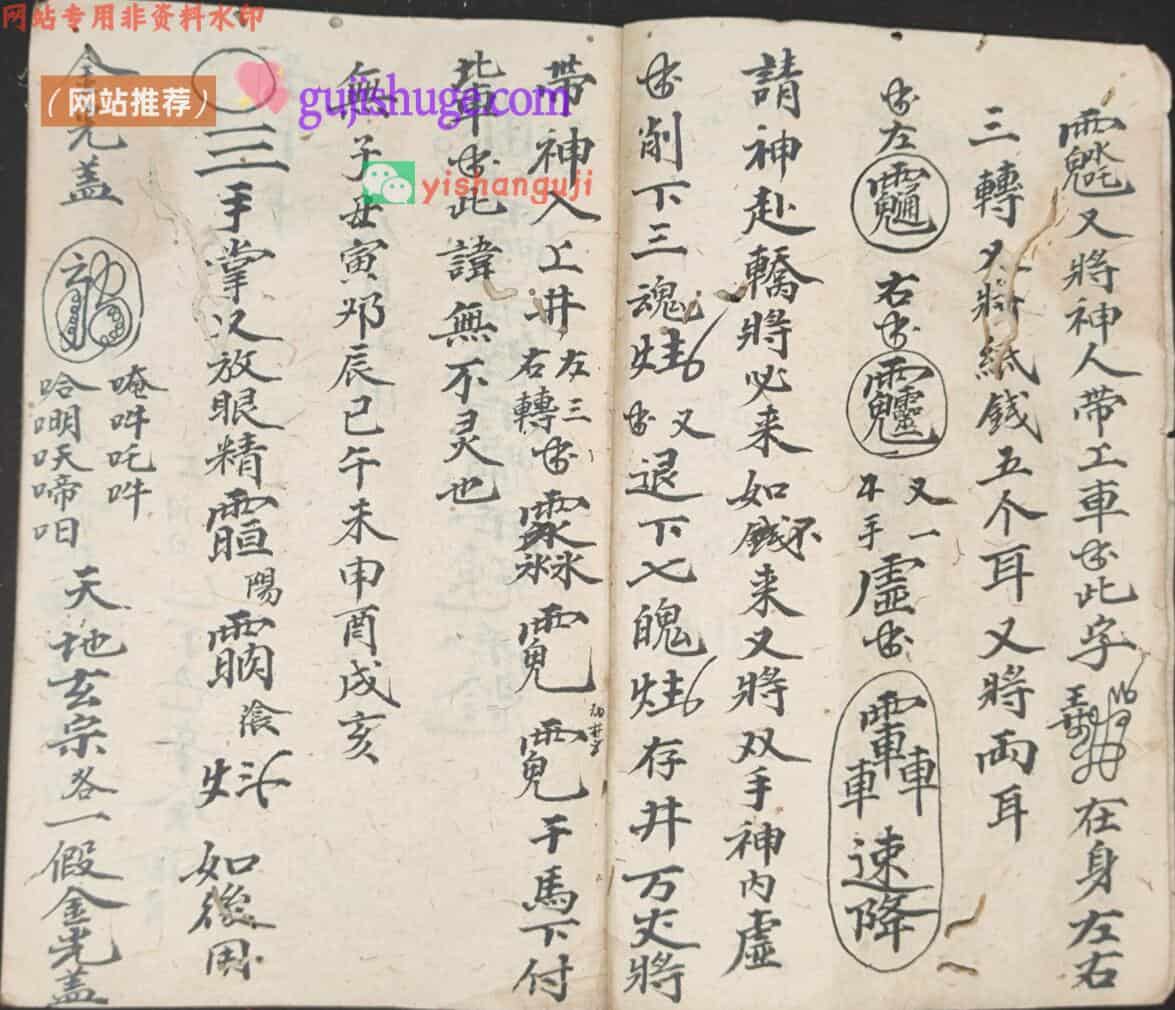 网站专用非资料水印
（网站推荐）
gujishuge.com
yishanguji
又將神人带工車此字在身左右
三轉又將紙錢五个耳又將両耳
左右又一手虚轟速降
請神赴轎將必来如不錢来又將双手神内虚
削下三魂又退下七魄存井万丈將
带神入工井左三右轉干馬下付
此車此諱無不灵也
無子丑寅夘辰巳午未申酉戌亥
三手掌又放眼精陽如後用
金光盖唵吽吒吽哈明天啼呾天地玄宗各一假金光盖